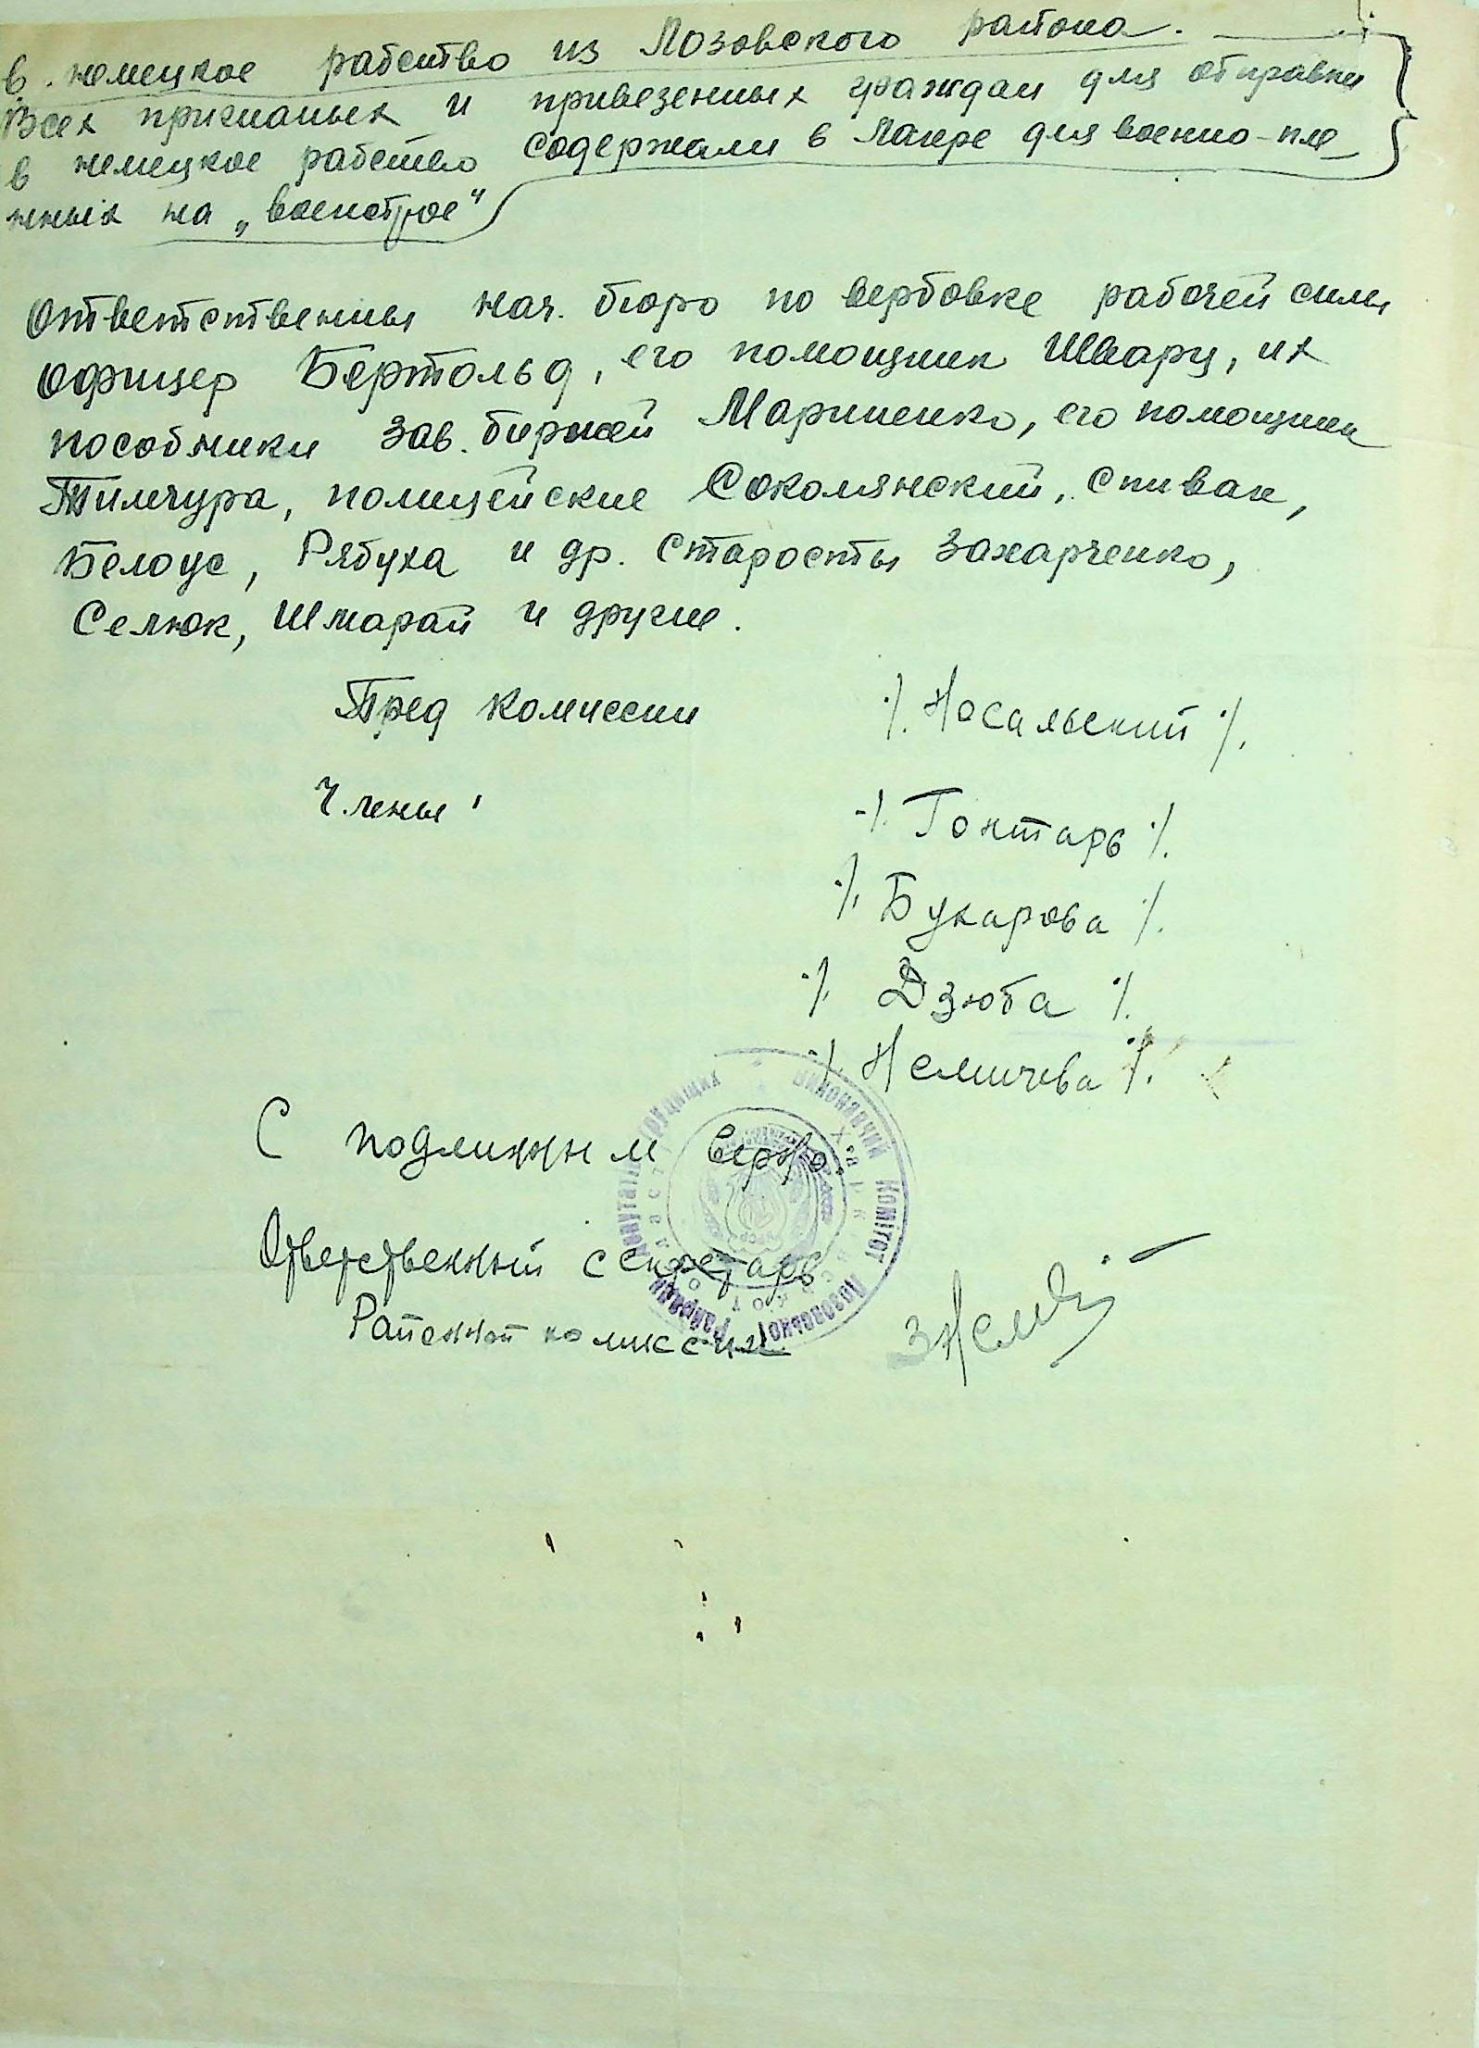 в немецкое рабство из Лозовского района.
Всех пригнаных и привезенных граждан для отправки
в немецкое рабство содержали в лагере для военно-пле
нных на „военстрое"
Ответственны нач. бюро по вербовке рабочей силы
офицер Бертольд, его помощник Шварц, их
пособники зав. биржей Мариненко, его помощник
Тимчура, полицейские Соколянский, Спивак,
Белоус, Рябуха и др. Старосты Захарченко,
Селюк, Шмарай и другие.
Пред комиссии ./. Носальский ./.
Члены: ./. Гонтарь ./.
./. Бухарова ./.
./. Дзюба ./.
./. Немичева ./.
С подлинным верно.
Ответственный секретарь
Районной комиссии
Виконавчий Комітет Лозовської Районної депутатів трудящих
Харківської області